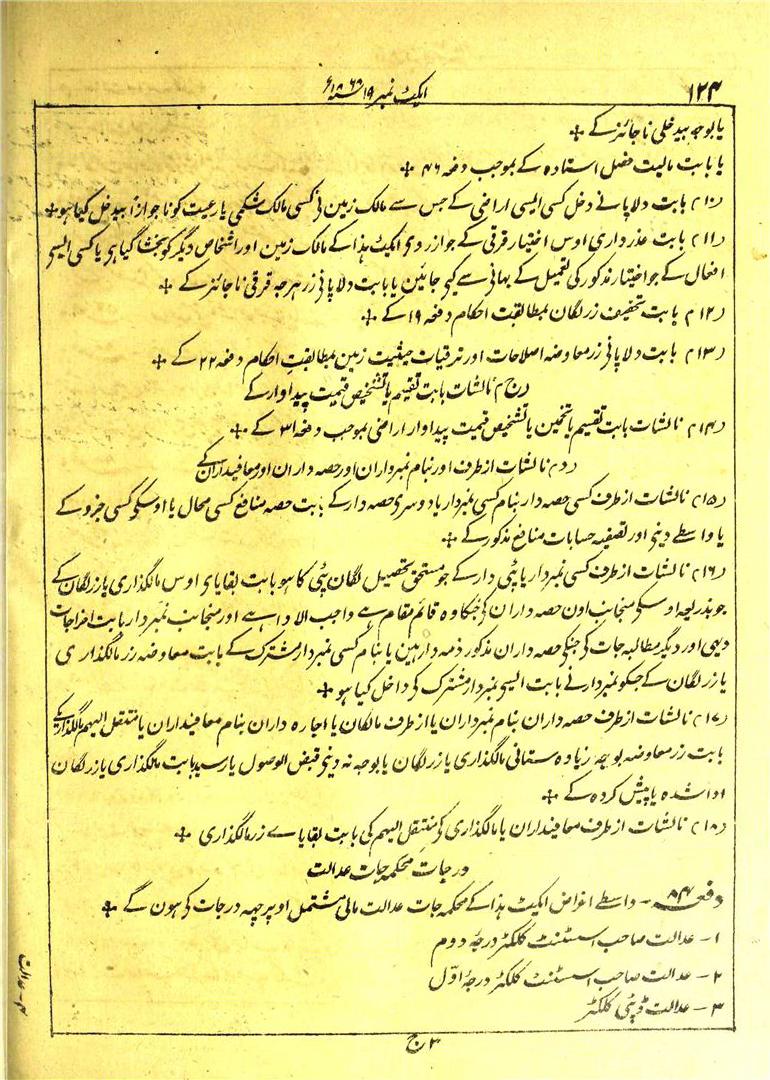 ۱۲۴
ایکٹ نمبر ۱۹ سنہ ۱۸۶۸ء
یا بوجہ بیدخلی ناجائز کے
یا بابت مالیت فصل استادہ کے بموجب دفعہ ۴۶
(۱۰) بابت دلاپانے دخل کسی ایسی اراضی کے جس سے مالک زمین نی کسی مالک شکمی یا رعیت کو ناجوازاً بیدخل کیا ہو
(۱۱) بابت عذرداری اوس اختیار قرقی کے جو از روی ایکٹ ہذا کے مالک زمین اور اشخاص دیگر کو بخشا گیا ہی یا کسی ایسی
افعال کے جو اختیار مذکور کی تعمیل کے بہانی سے کیی جائین یا بابت دلاپانی زر ہرجہ قرقی ناجائز کے
(۱۲) بابت تخفیف زر لگان بمطابقت احکام دفعہ ۱۹ کے
(۱۳) بابت دلاپانی زر معاوضہ اصلاحات اور ترقیات حیثیت زمین بمطابقت احکام دفعہ ۲۲ کے
(ج) نالشات بابت تقسیم یا تشخیص قیمت پیداوار کے
(۱۴) نالشات بابت تقسیم یا تخمین یا تشخیص قیمت پیداوار اراضی بموجب دفعہ ۳۱ کے
(د) نالشات از طرف اور بنام نمبرداران اور حصہ داران اور معافیداران کے
(۱۵) نالشات از طرف کسی حصہ دار بنام کسی نمبردار یا دوسری حصہ دار کے بابت حصہ منافع کسی محال یا اوسکی کسی جزو کے
یا واسطے دینی اور تصفیہ حسابات منافع مذکور کے
(۱۶) نالشات از طرف کسی نمبردار یا پٹی دار کے جو مستحق تحصیل لگان پٹی کا ہو بابت بقایای اوس مالگذاری یا زر لگان کے
جو بذریعہ اوسکی منجانب اون حصہ داران کی جنکا وہ قائم مقام ہے واجب الادا ہے اور منجانب نمبردار بابت اخراجات
دیہی اور دیگر مطالبہ جات کی جنکی حصہ داران مذکور ذمہ دار ہین یا بنام کسی نمبردار مشترک کے بابت معاوضہ زر مالگذاری
یا زر لگان کے جسکو نمبردار نے بابت ایسی نمبردار مشترک کی داخل کیا ہو
(۱۷) نالشات از طرف حصہ داران بنام نمبرداران یا از طرف مالکان یا اجارہ داران بنام معافیداران یا منتقل الیہم مالگذاری کے
بابت زر معاوضہ بوجہ زیادہ ستانی مالگذاری یا زر لگان یا بوجہ نہ دینی قبض الوصول یا رسید بابت مالگذاری یا زر لگان
ادا شدہ یا پیش کردہ کے
(۱۸) نالشات از طرف معافیداران یا مالگذاری کی منتقل الیہم کی بابت بقایاے زر مالگذاری
درجات محکمہ جات عدالت
دفعہ ۸۴ — واسطے اغراض ایکٹ ہذا کے محکمہ جات عدالت مالی مشتمل اوپر چہہ درجات کی ہون گے
۱ - عدالت صاحب اسسٹنٹ کلکٹر درجۂ دوم
۲ - عدالت صاحب اسسٹنٹ کلکٹر درجۂ اوّل
۳ - عدالت ڈپٹی کلکٹر
۴ - عدالت
۳ ج